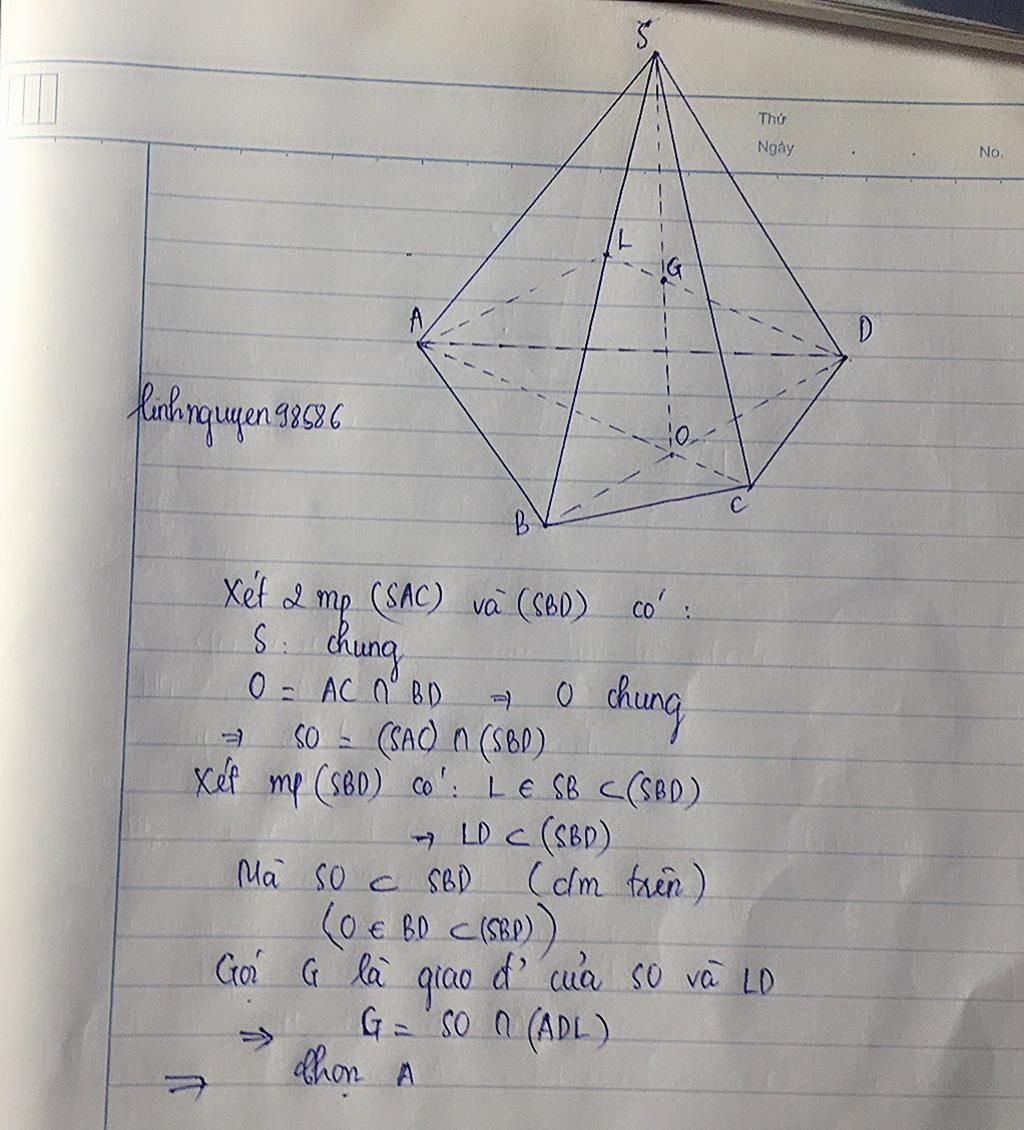 S
Thứ
Ngày . . No.
L
G
A
D
linhnguyen98686
O
C
B
Xét 2 mp (SAC) và (SBD) có :
S : chung
O = AC ∩ BD → O chung
⇒ SO = (SAC) ∩ (SBD)
Xét mp (SBD) có : L ∈ SB ⊂ (SBD)
→ LD ⊂ (SBD)
Mà SO ⊂ SBD (cm trên)
(O ∈ BD ⊂ (SBD))
Gọi G là giao đ' của SO và LD
⇒ G = SO ∩ (ADL)
⇒ Chọn A